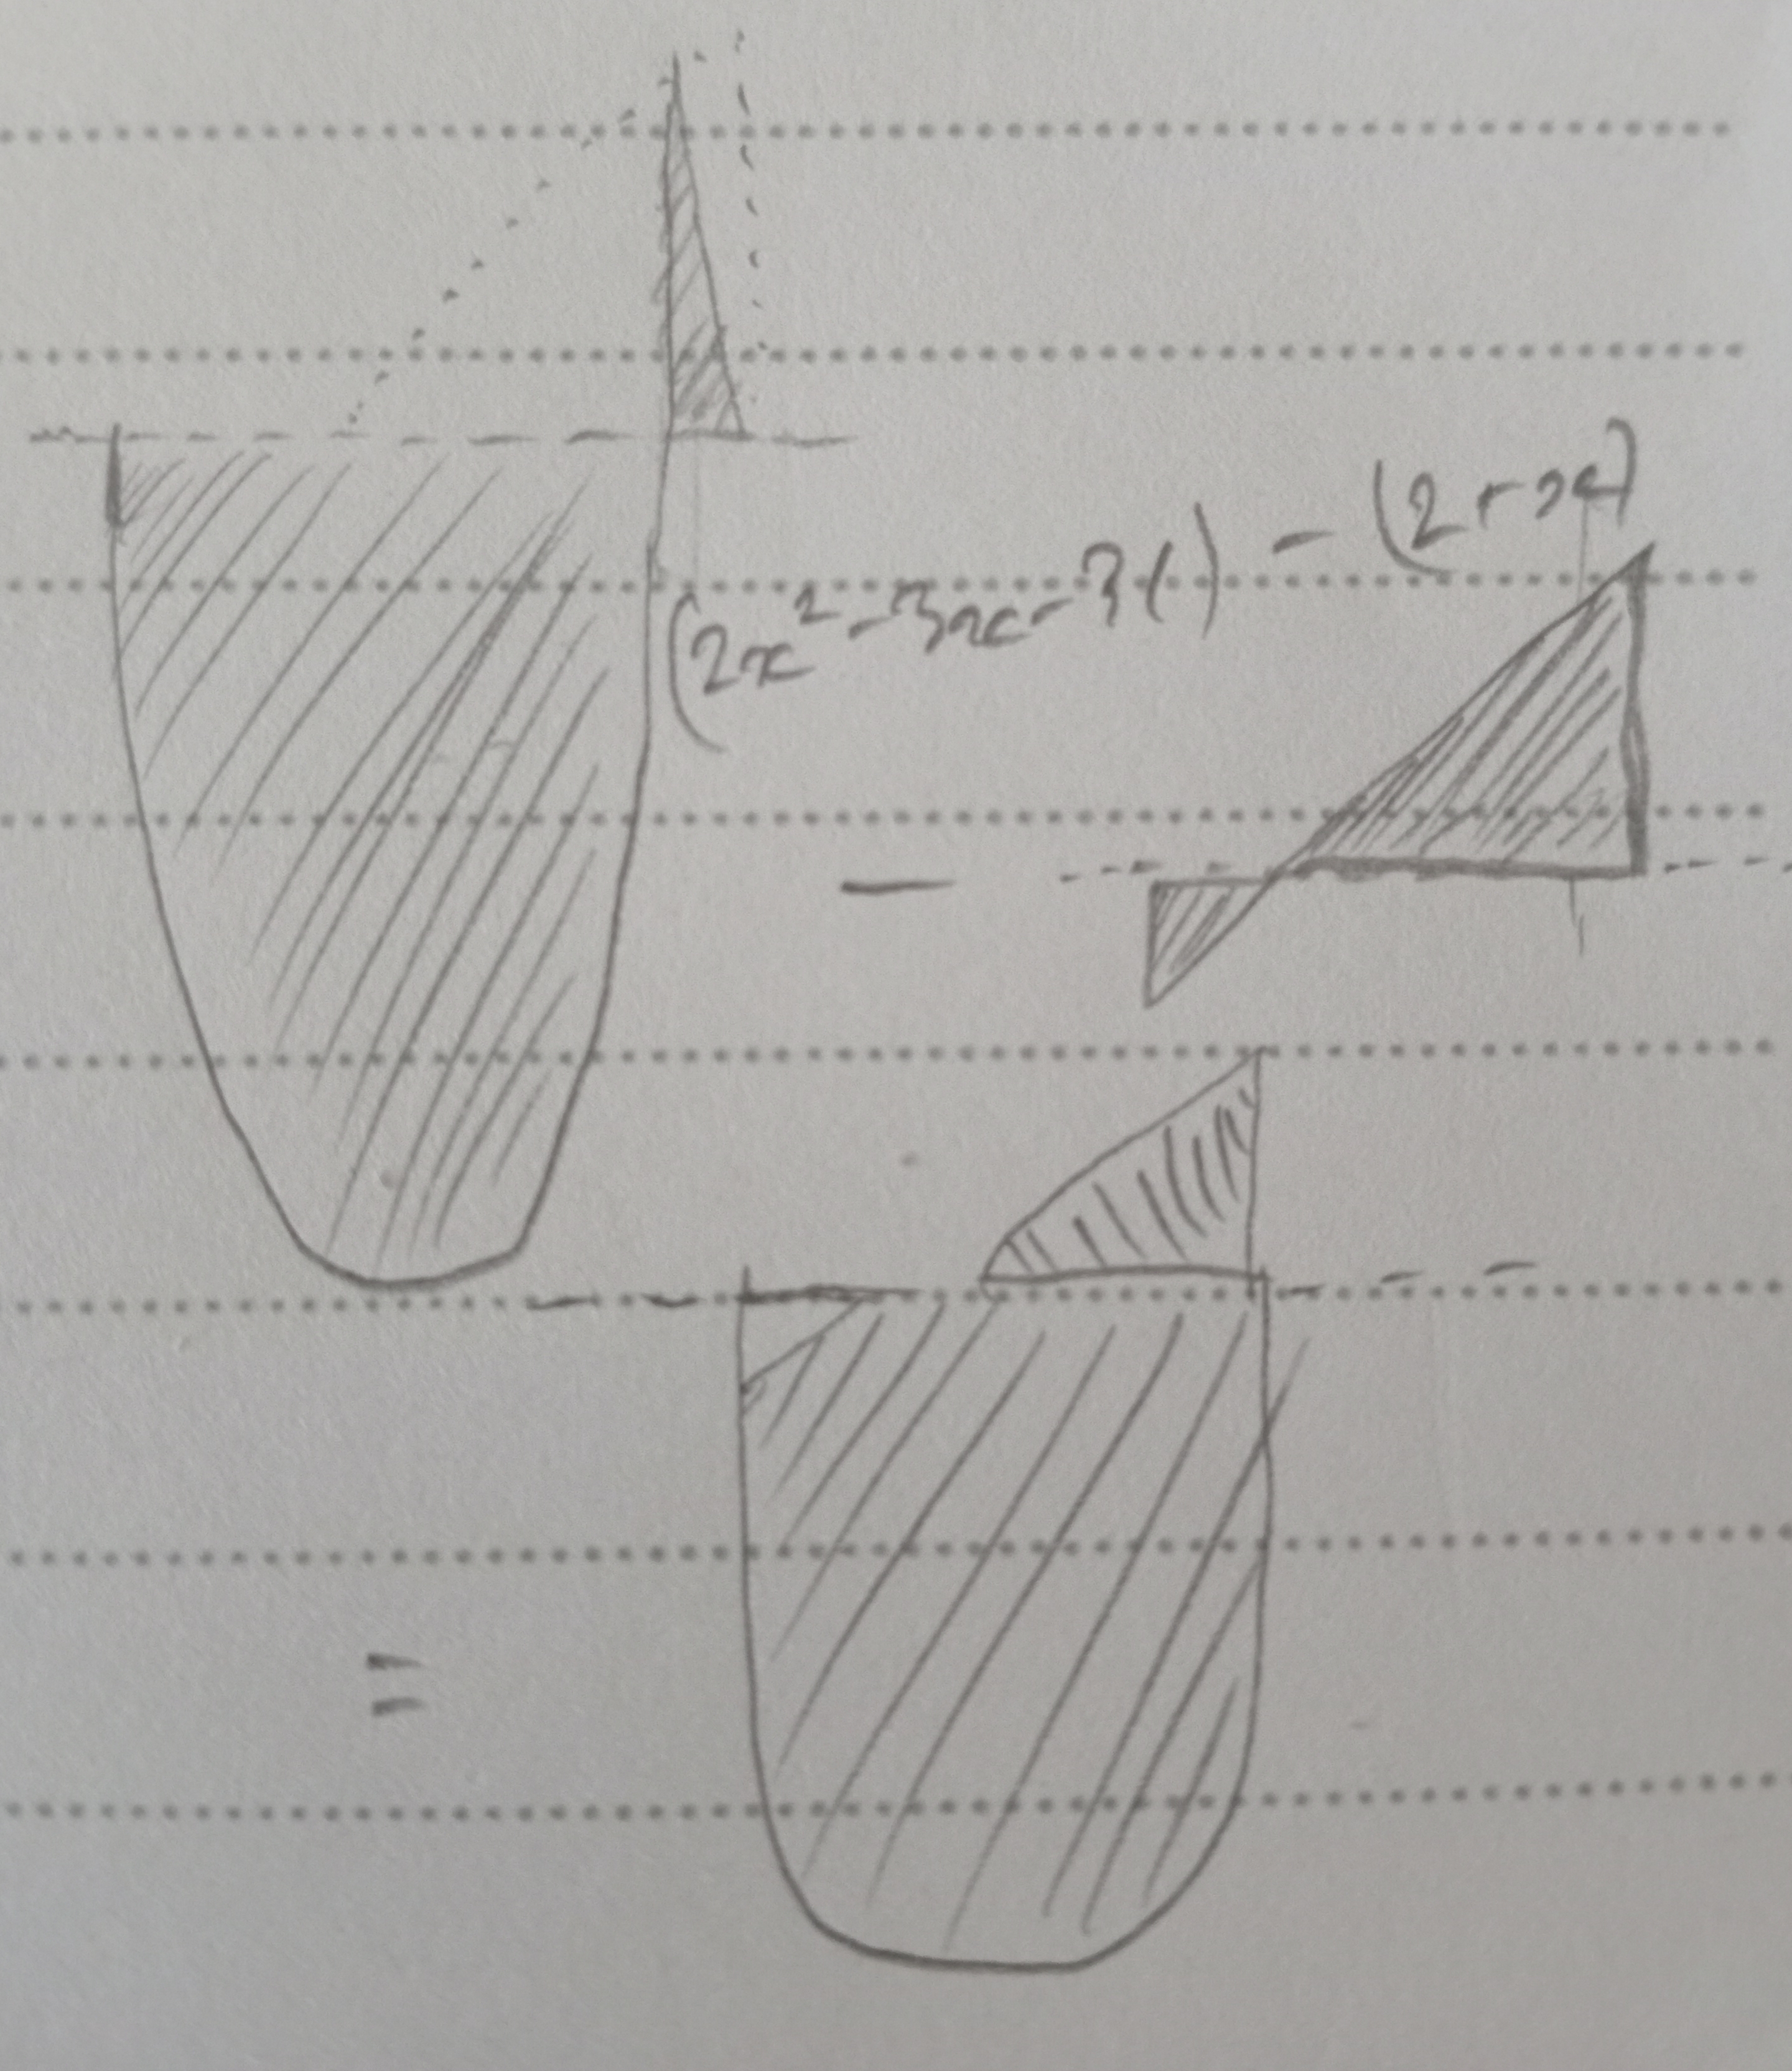 (2x²-3x-31) - (2+x)
-
=